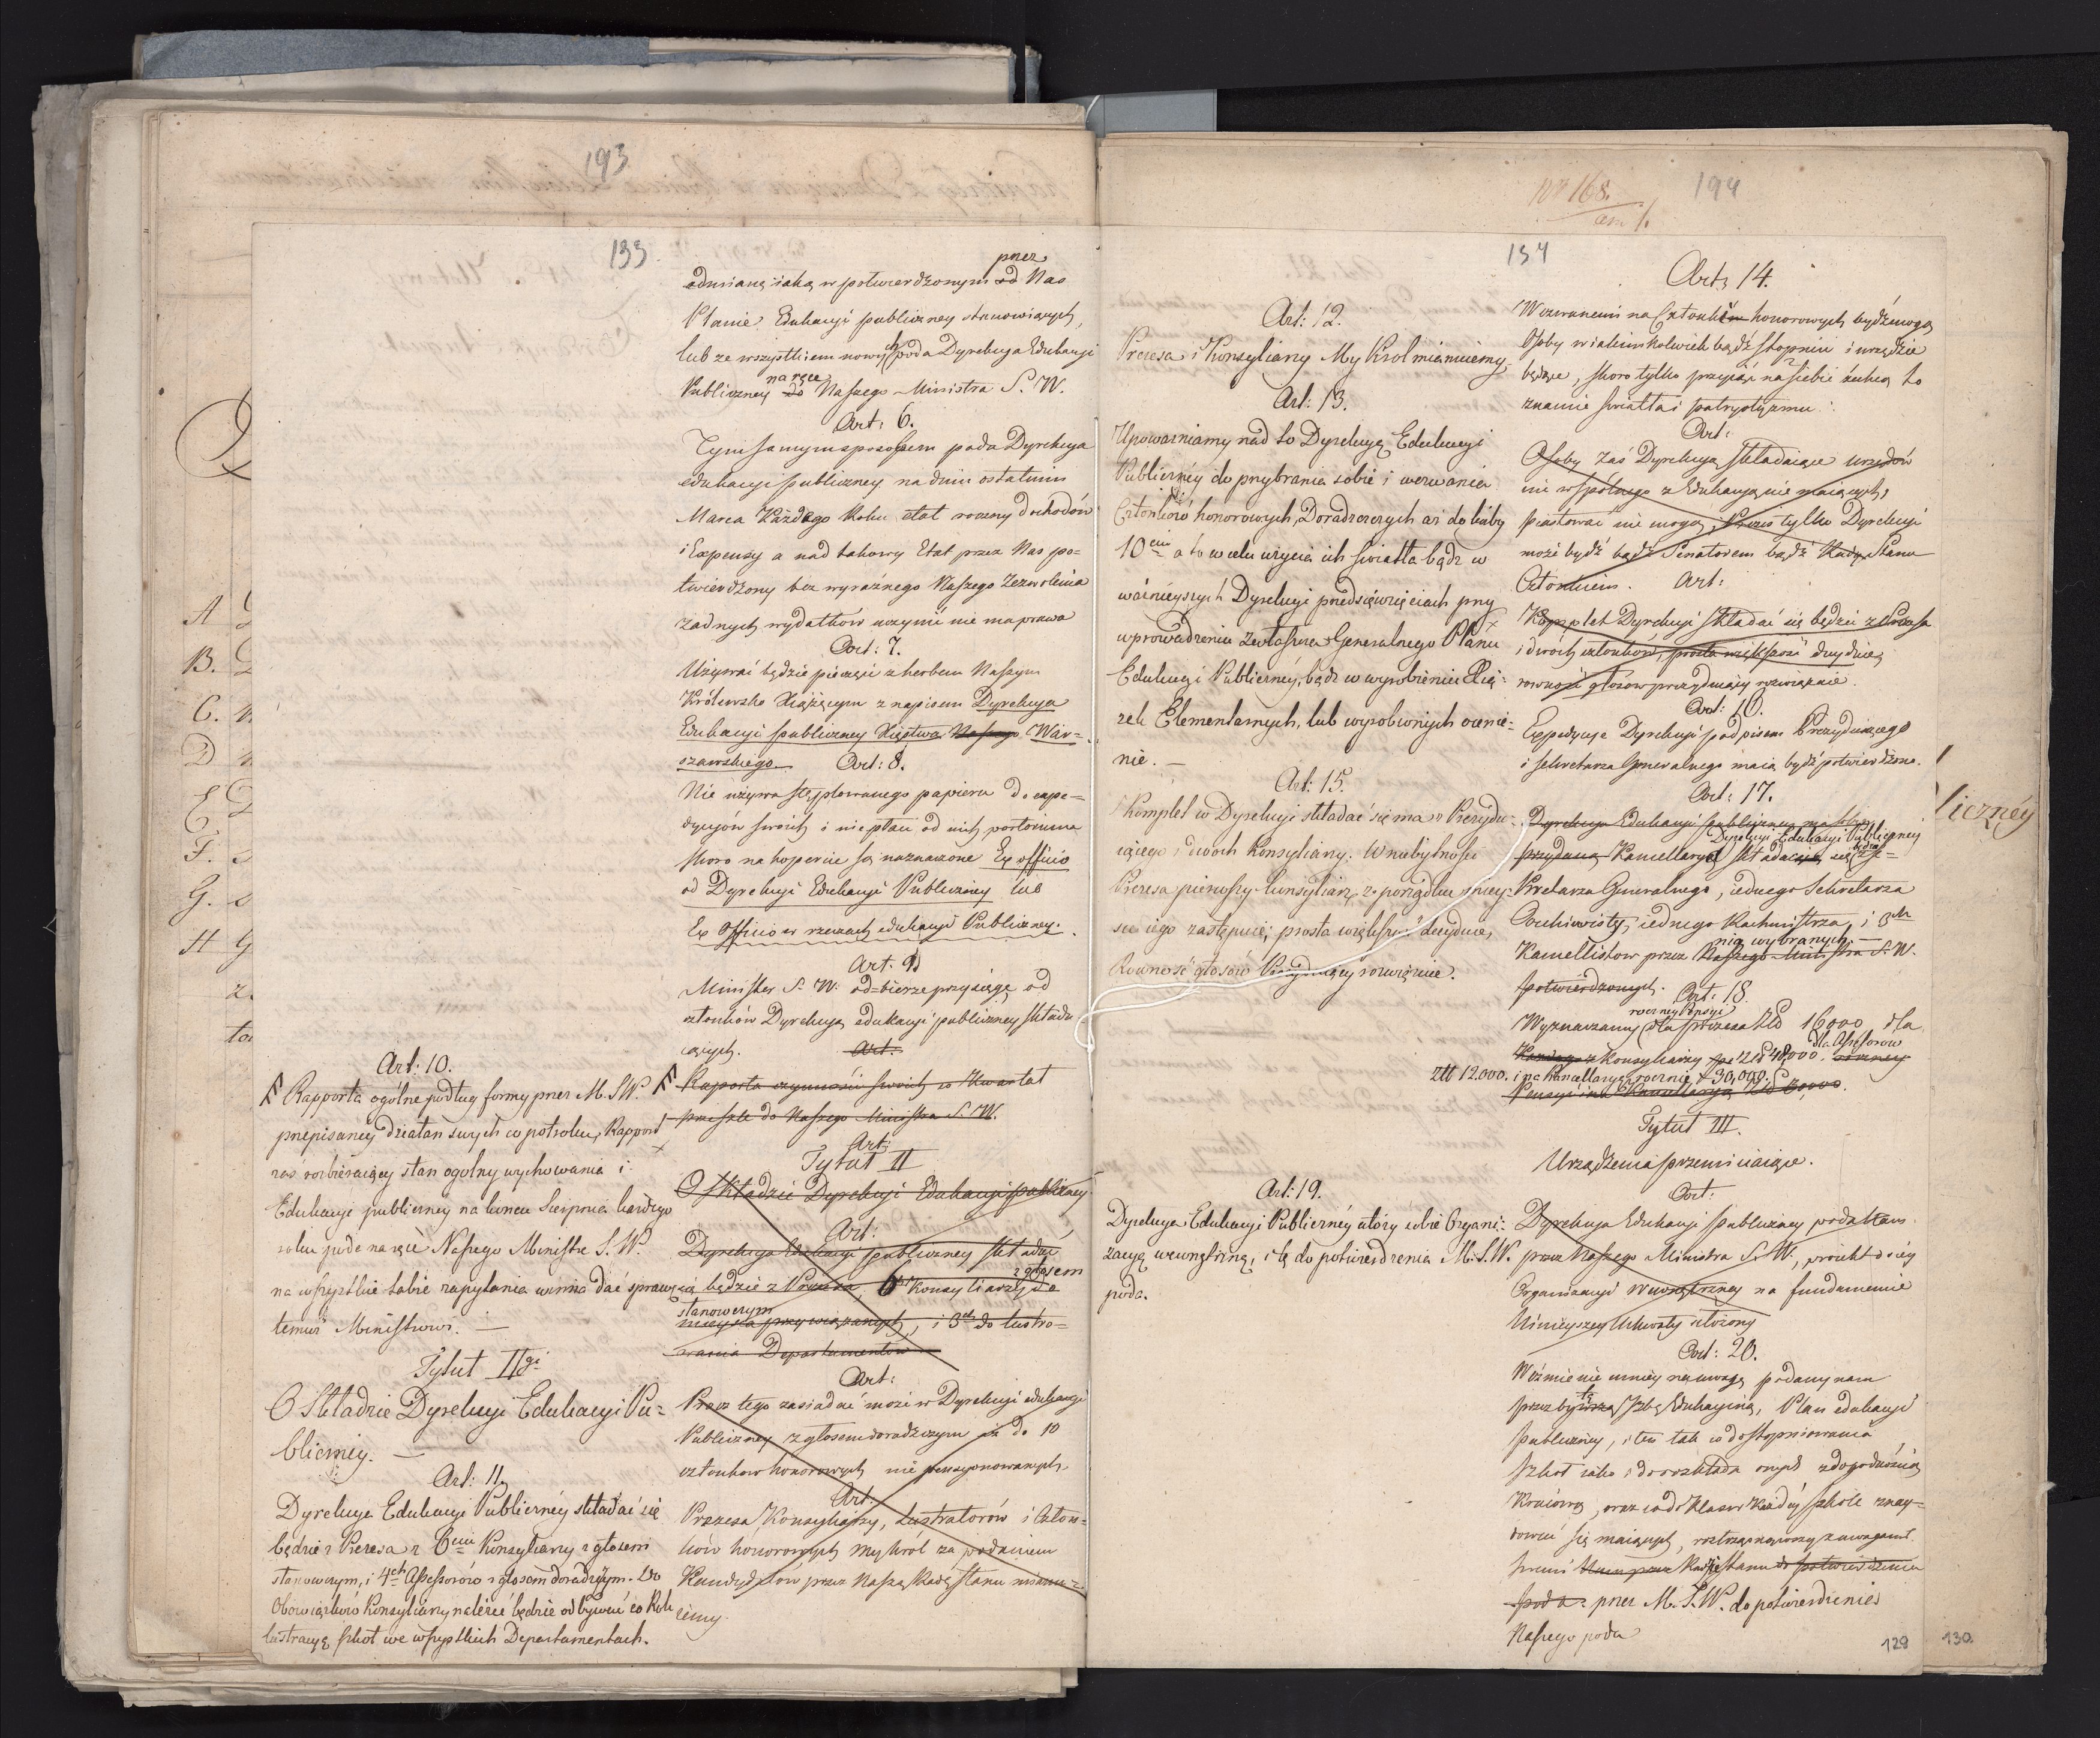 193
133.
przez
odmianę iaką w potwierdzonym od Nas
Planie Edukacyi publiczney stanowiących,
lub ze wszystkiem nowych poda Dyrekcya Edukacyi
na ręce
Publiczney do Naszego Ministra S. W.
Art: 6.
Tym samym sposobem poda Dyrekcya
edukacyi publiczney na dniu ostatnim
Marca Każdego Roku etat roczny dochodów
i Expensy a nad takowy Etat przez Nas po=
twierdzony bez wyraźnego Naszego Zezwolenia
żadnych wydatków uczynić nie ma prawa
Art: 7.
Używać będzie pieczęci z herbem Naszym
Królewsko Xiążęcym z napisem Dyrekcya
Edukacyi publiczney Xięstwa Naszego War=
szawskiego. Art: 8.
Nie używa stęplowanego papieru do expe=
dycyów swoich i nie płaci od nich portorium
skoro na kopercie są naznaczone Ex officio
od Dyrekcyi Edukacyi Publiczney lub
Ex Officio w rzeczach edukacyi Publiczney.
Art. 9.
Minister S. W. od=bierze przysięgę od
członków Dyrekcyą edukacyi publiczney składa
iących. Art.
Raporta czynności swoich co Kwartał
prześle do Naszego Ministra S. W.
Art:
Tytuł II
O Składzie Dyrekcyi Edukacyi publiczney
Art:
Dyrekcya Edukacyi publiczney składać
z głosem
się będzie z Prezesa, 6 Konsyliarzy do
stanowczym
mieysca przywiązanych, i 3ch do lustro=
wania Departamentów
Art:
Prócz tego zasiadać może w Dyrekcyi edukacyi
Publiczney z głosem doradczym do 10
członkow honorowych nie pensyonowanych
Art:
Prezesa, Konsyliarzy, Lustratorów i Człon=
ków honorowych my Król za podaniem
Kandydatów przez Naszą Radę Stanu mianu=
iemy.
Art: 10.
Rapporta ogólne podług formy przez M. S. W.
przepisaney działań swych co pół roku, Rapport
zaś rozbieraiący stan ogolny wychowania i
Edukacyi publiczney na końcu Sierpnia każdego
roku poda na ręce Naszego Ministra S. W.
na wszystkie także zapytania winna dać sprawę
temuż Ministrowi. —
Tytuł IIgi
O Składzie Dyrekcyi Edukacyi Pu=
bliczney. —
Art: 11.
Dyrekcya Edukacyi Publiczney składać się
będzie z Prezesa z 6ciu Konsyliarzy z głosem
stanowczym, i 4ch Assessorów z głosem doradczym. Do
Obowiązków Konsyliarzy należeć będzie odbywać co Rok
lustracyą szkół we wszystkich Departamentach.
194
134
Art: 12.
Prezesa i Konsyliarzy My Król mianuiemy.
Art: 13.
Upoważniamy nad to Dyrekcyą Edukacyi
Publiczney do przybrania sobie i wezwania
Członków honorowych, Doradzczych aż do liczby
10ciu a to w celu użycia ich światła bądź w
ważnieyszych Dyrekcyi przedsięwzięciach przy
uprowadzeniu zwłaszcza Generalnego Planu
Edukacyi Publiczney, bądz w wyrobieniu Xią=
żek Elementarnych, lub wyrobionych ocenie=
nie. —
Art: 15.
Komplet w Dyrekcyi składać się ma z Prezydu=
iącego i dwoch Konsyliarzy. W niebytności
Prezesa pierwszy konsyliarz z porządku miey=
sce iego zastępuie; prosta większość decyduie,
Równość głosów Prezyduiący rozwiąznie.
Art: 19.
Dyrekcya Edukacyi Publiczney ułoży sobie Organi=
zacyą wewnętrzną, i tę do potwierdzenia M. S. W.
poda.
Art: 14.
Wezwanemi na Członków honorowych bydź mogą
Osoby w iakimkolwiek bądź stopniu i urzędzie
będące, skoro tylko przyiąć na siebie zechcą to
znamie światła i patryotyzmu.
Art:
Osoby zaś Dyrekcyą składaiące urzędów
nic wspólnego z Edukacyą nie maiących,
piastować nie mogą. Prezes tylko Dyrekcyi
może bydź bądź Senatorem bądź Rady Stanu
Członkiem. Art:
Komplet Dyrekcyi składać się będzie z Prezesa
i dwóch członków, prosta większość decyduie,
rowność głosów prezyduiący rozwiąznie.
Art: 16.
Expedycye Dyrekcyi podpisem Prezyduiącego
i sekretarza Generalnego maią bydź potwierdzone.
Art: 17.
Dyrekcya Edukacyi publiczney ma
Dyrekcyi Edukacyi Publiczney
przydaną Kancellaryą składać się z Se=
kretarza Generalnego, iednego Sekretarza
Archiwisty, iednego Rachmistrza, i 3ch
nią wybranych. —
Kancellistow przez Naszego Ministra S. W.
potwierdzonych.
Art: 18.
roczney Pensyi
Wyznaczamy dla prezesa Zło 16000 dla
dla Assessorow
Każdego z Konsyliarzy po 48,000. roczney
Złł 12.000. i na Kancellaryą rocznie 30,000.
Pensyi i na Kancellaryą
Tytuł III.
Urządzenia przemiiaiące.
Art:
Dyrekcya Edukacyi publiczney poda Nam
przez Naszego Ministra S. W., proiekt do iey
Organizacyi wewnętrzney na fundamencie
Ninieyszey Uchwały ułożony
Art: 20.
Weźmie nie mniey na uwagę podany nam
przez byłą Izbę Edukacyiną, Plan edukacyi
publiczney, i ten tak co do stopniowania
szkół iako i do rozkładu onych z dogodnością
Kraiową, oraz co do klass w każdey szkole znay=
dować się maiących, roztrząsnąwszy z uwagami
swemi Nam przez Radę Stanu do potwierdzenia
poda. przez M. S. W. do potwierdzenia
Naszego poda
129
130
liczney
A
B.
C.
D
E
F.
G.
H